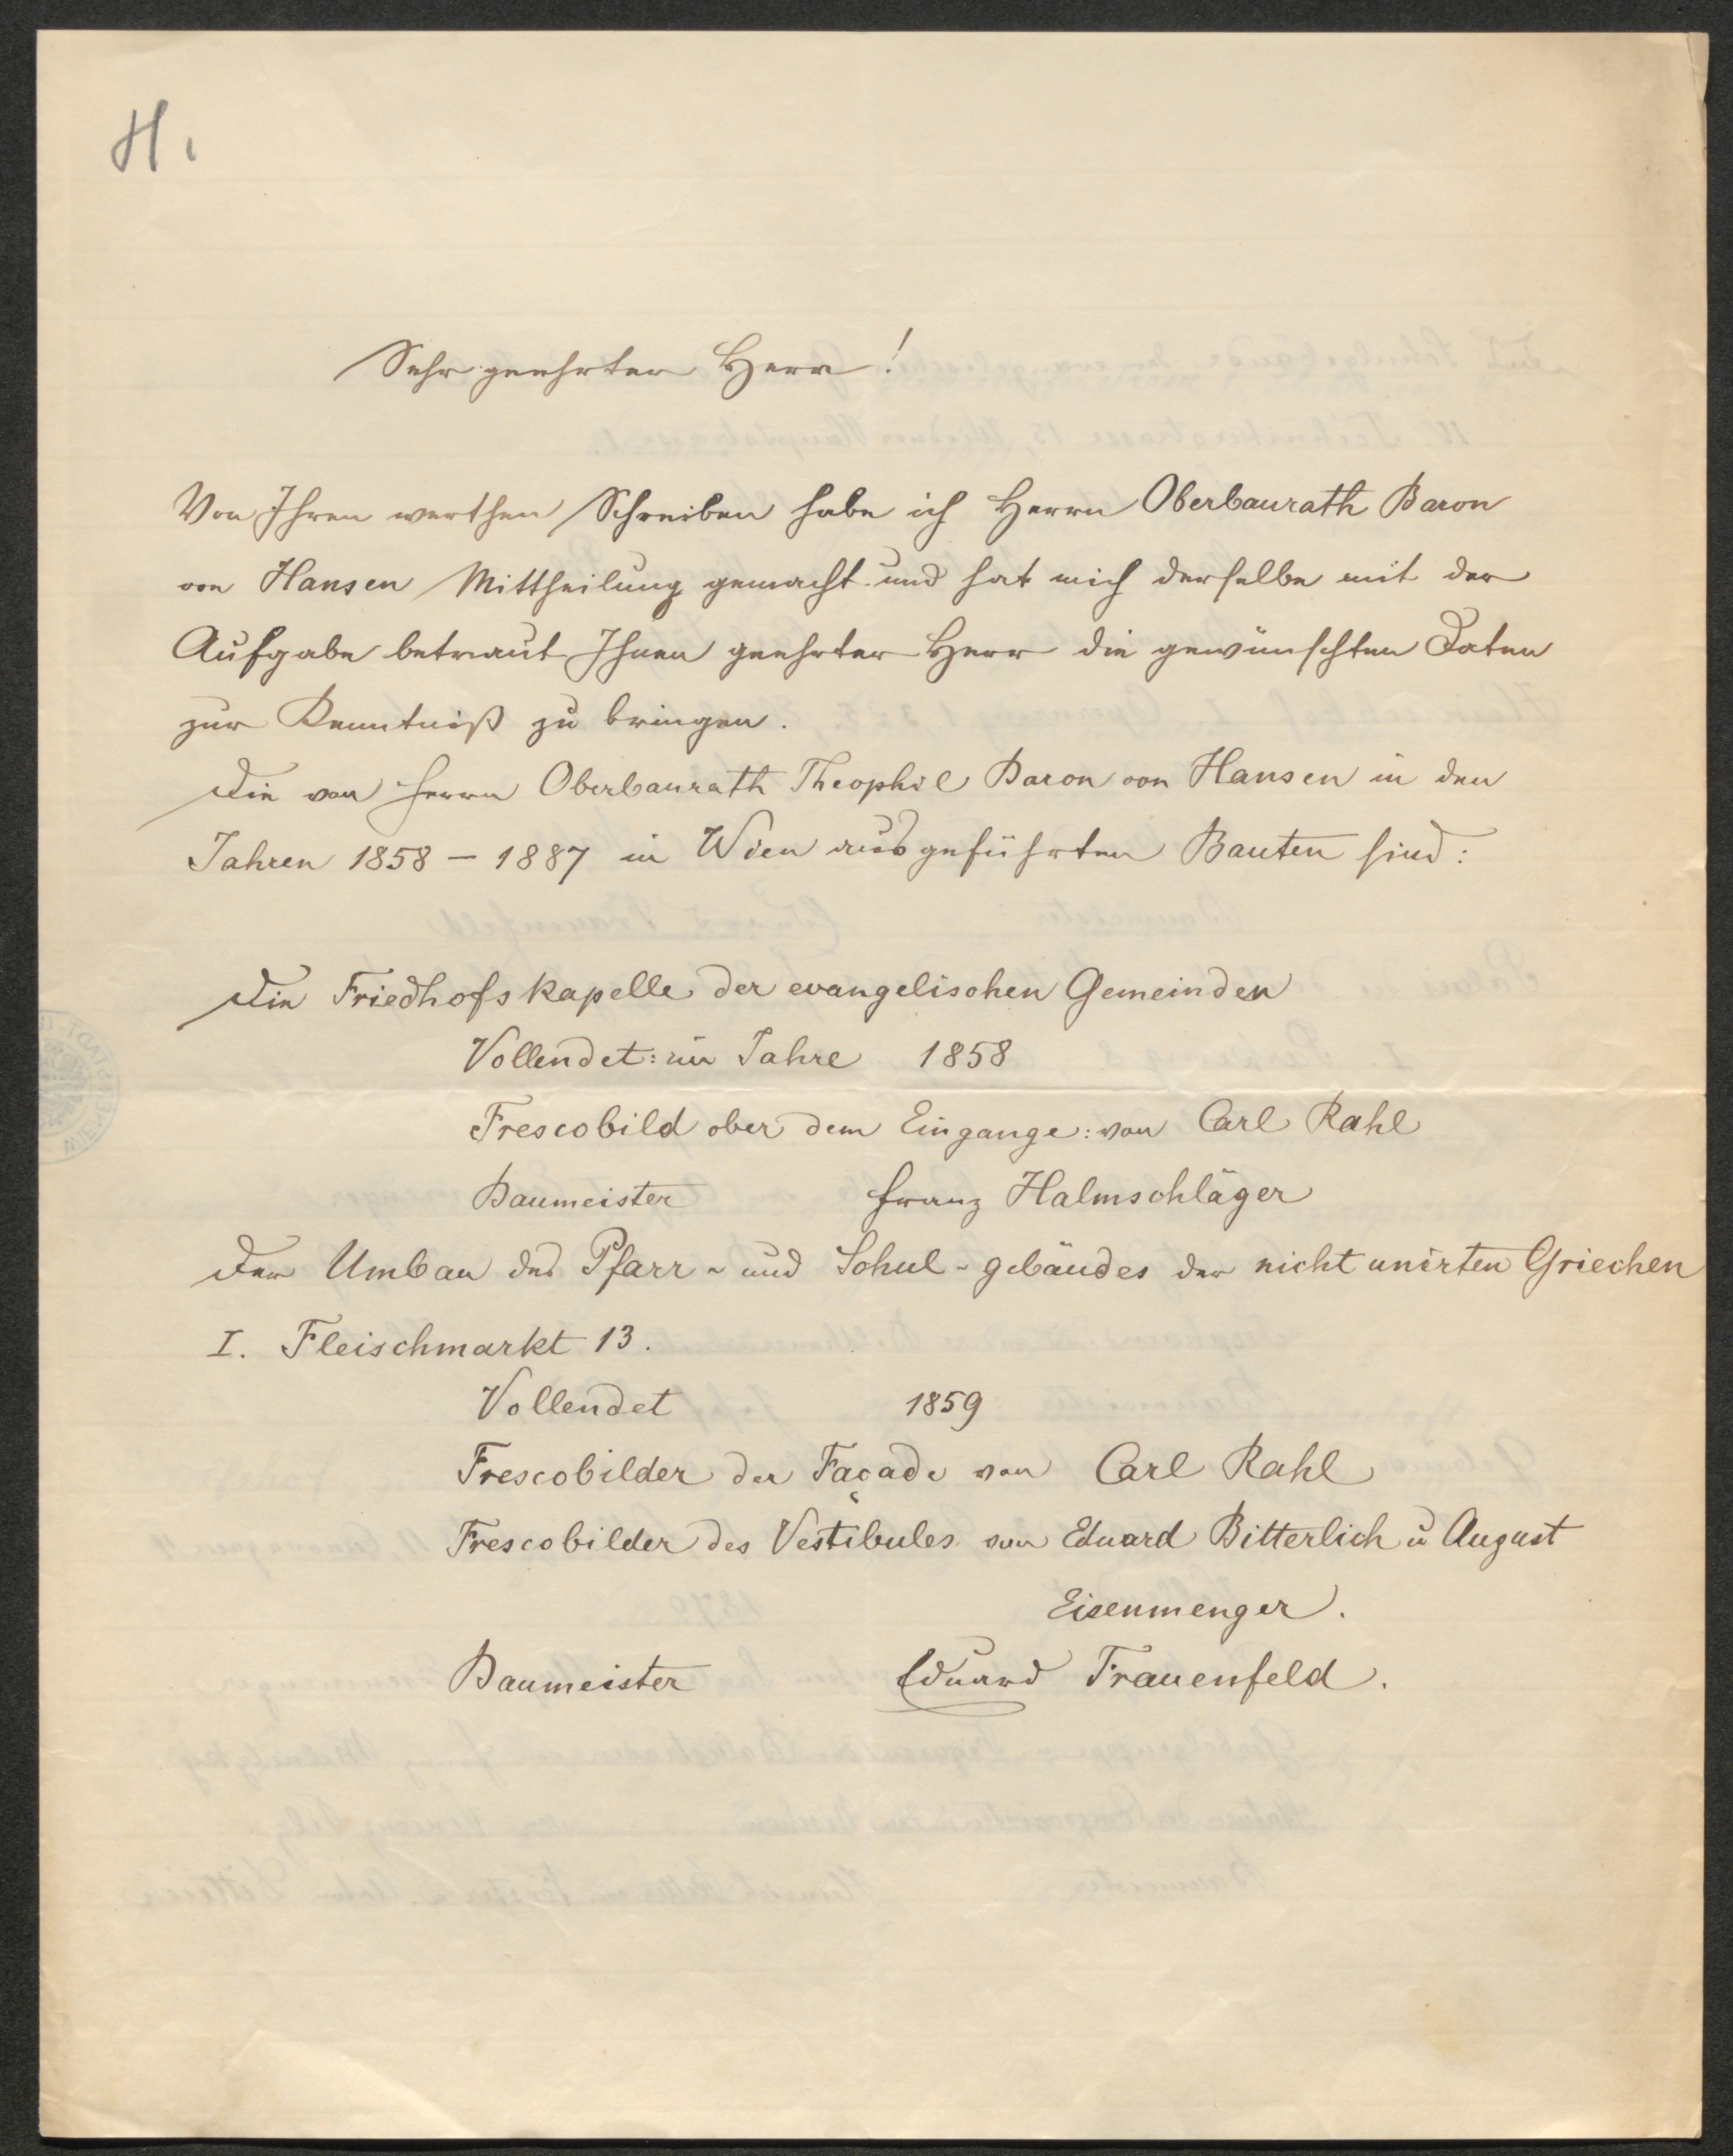 H.
Sehr geehrter Herr!
Von Ihren werthen Schreiben habe ich Herrn Oberbaurath Baron
von Hansen Mittheilung gemacht und hat mich derselbe mit der
Aufgabe betraut Ihnen geehrter Herr die gewünschten Daten
zur Kenntniß zu bringen.
Die von Herrn Oberbaurath Theophil Baron von Hansen in den
Jahren 1858 – 1887 in Wien ausgeführten Bauten sind:
Die Friedhofskapelle der evangelischen Gemeinden
Vollendet: im Jahre 1858
Frescobild ober dem Eingange: von Carl Rahl
Baumeister Franz Halmschläger
Der Umbau des Pfarr- und Schul-gebäudes der nicht unirten Griechen
I. Fleischmarkt 13.
Vollendet 1859
Frescobilder der Façade von Carl Rahl
Frescobilder des Vestibules von Eduard Bitterlich u August
Eisenmenger.
Baumeister Eduard Frauenfeld.